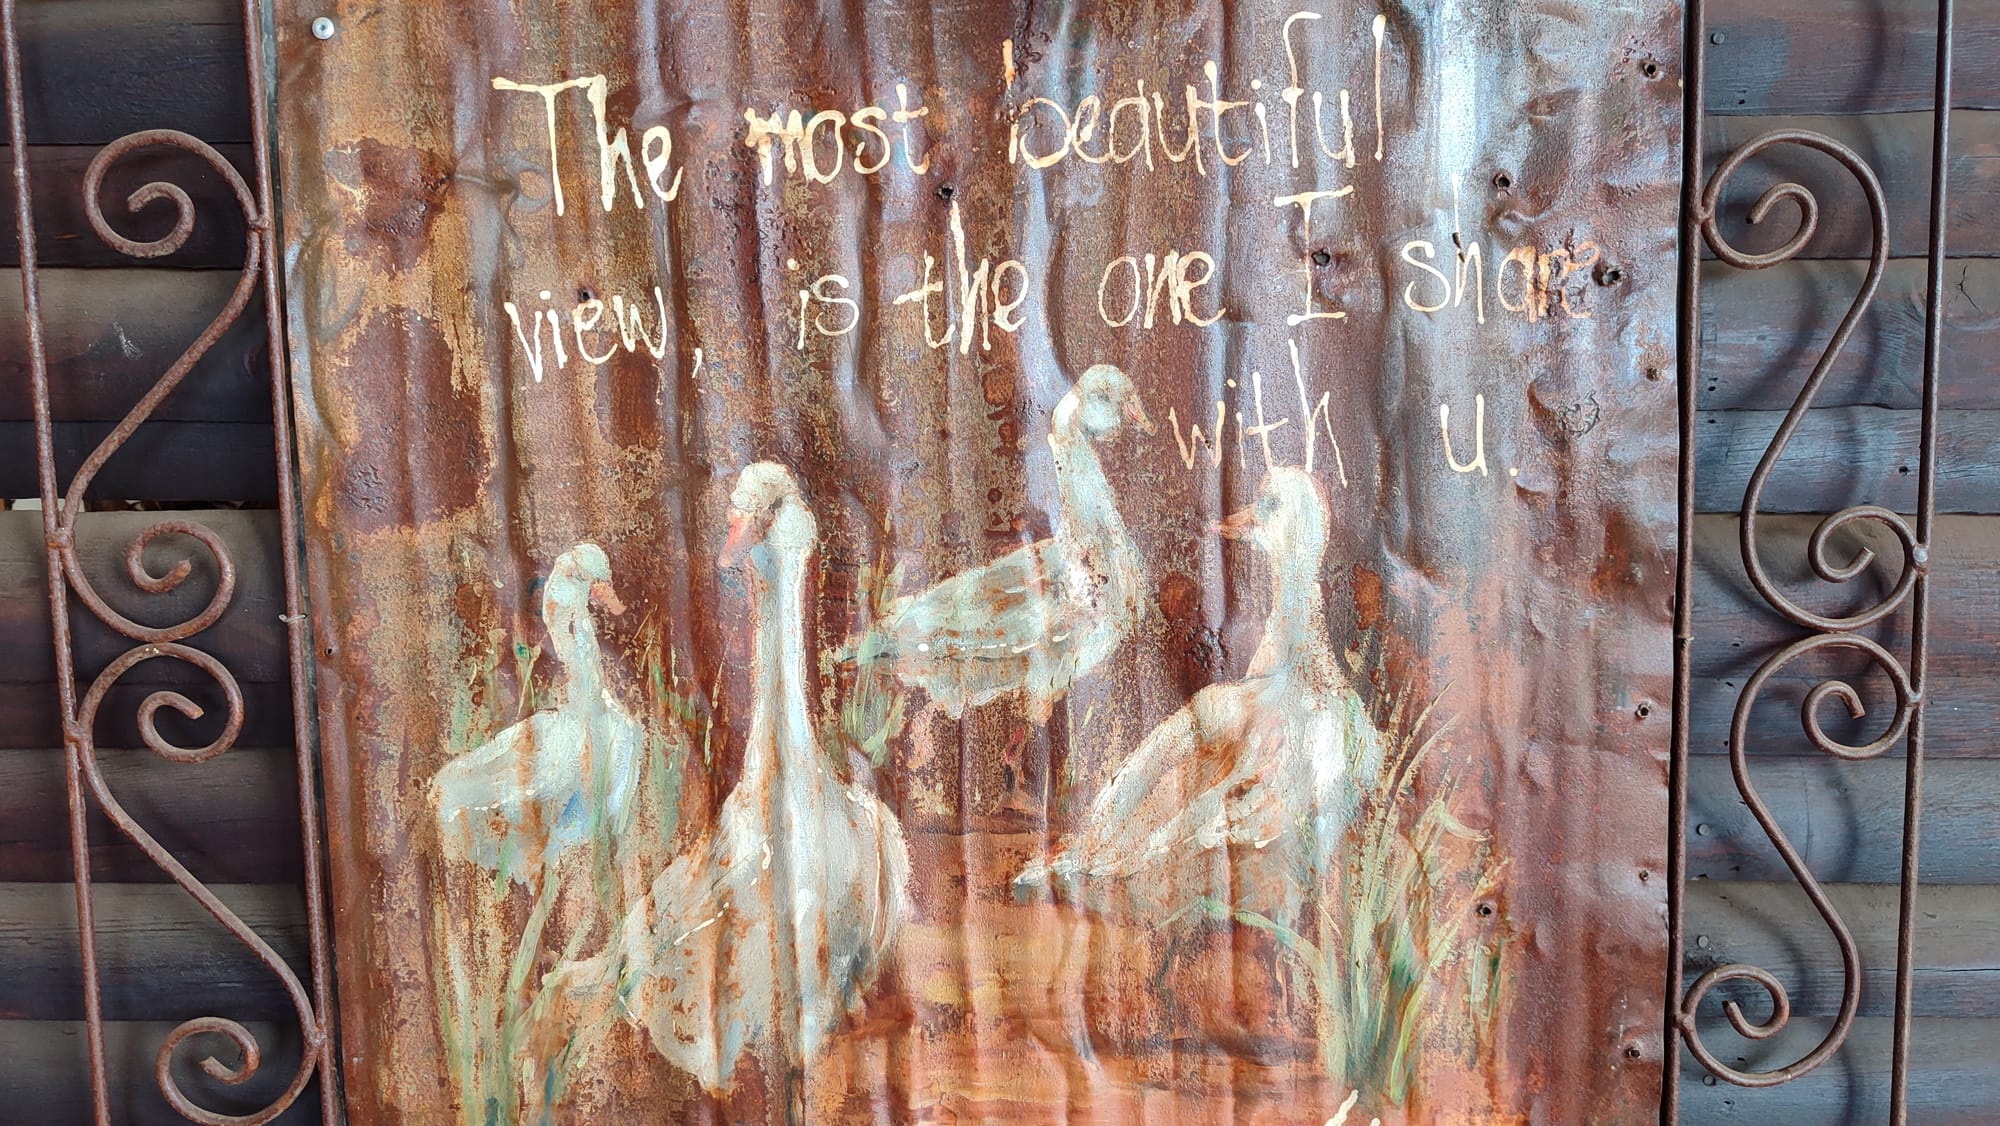 The most beautiful
view, is the one I share
with u.